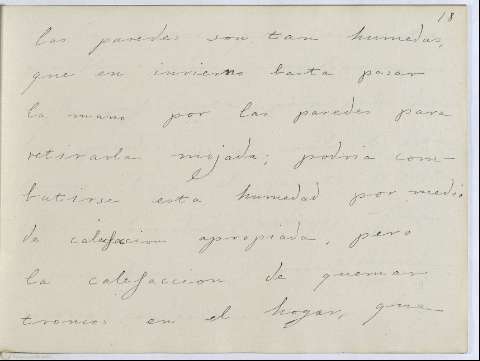 18
las paredes son tan humedas,
que en invierno basta pasar
la mano por las paredes para
retirarla mojada; podria com-
batirse esta humedad por medio
de calefaccion apropiada, pero
la calefaccion de quemar
troncos en el hogar, que